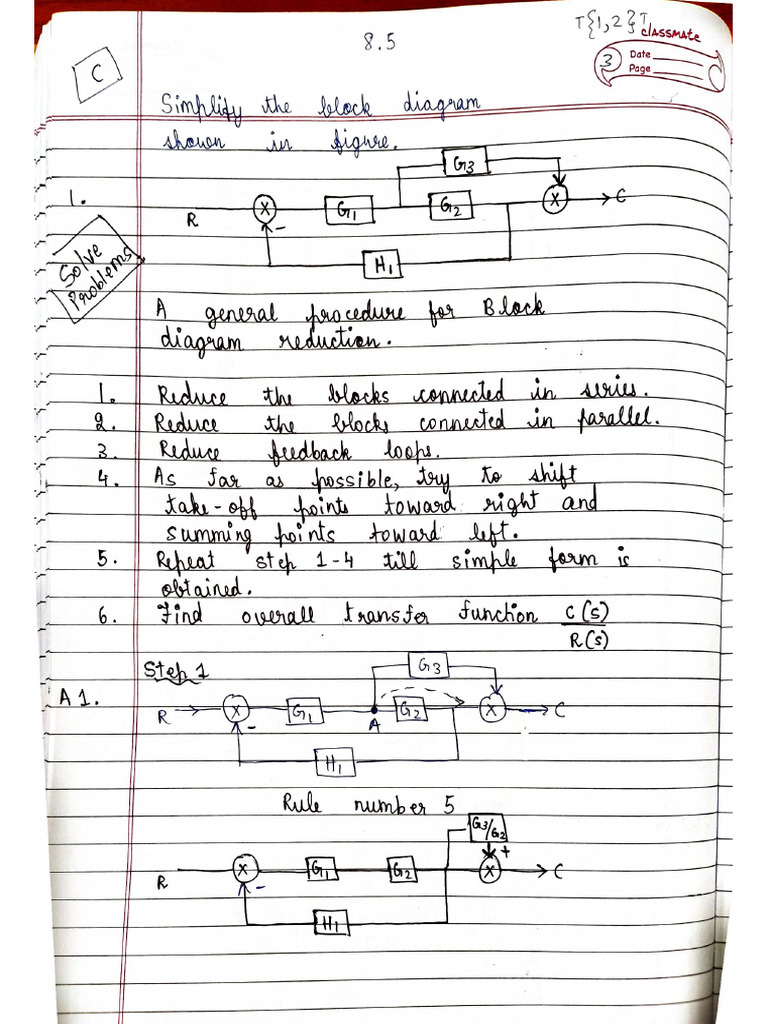 T{1,2}T
8.5
classmate
Date
3
Page
C
Simplify the block diagram
shown in figure.
G3
1.
R
X
-
G1
G2
X
C
H1
Solve
Problems
A general procedure for Block
diagram reduction.
1. Reduce the blocks connected in series.
2. Reduce the blocks connected in parallel.
3. Reduce feedback loops.
4. As far as possible, try to shift
take-off points toward right and
summing points toward left.
5. Repeat step 1-4 till simple form is
obtained.
6. Find overall transfer function C(s)
R(s)
Step 1
G3
A1.
R
X
-
G1
A
G2
X
C
H1
Rule number 5
G3/G2
+
R
X
-
G1
G2
X
C
H1